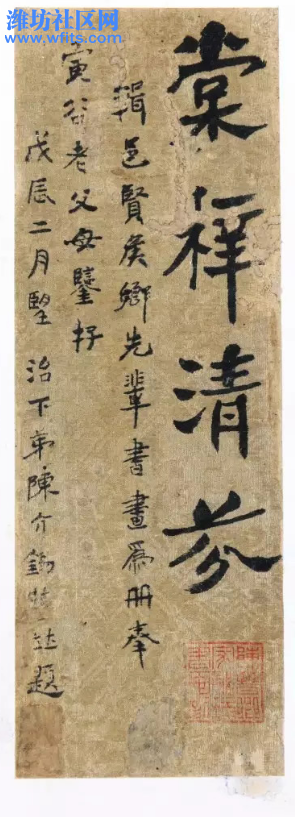 潍坊社区网
www.wfits.com
棠梓清芬
輯邑賢矦鄉先輩書畫爲冊奉
寅谷老父母鑒
戊辰二月 治下弟陳介錫 並題